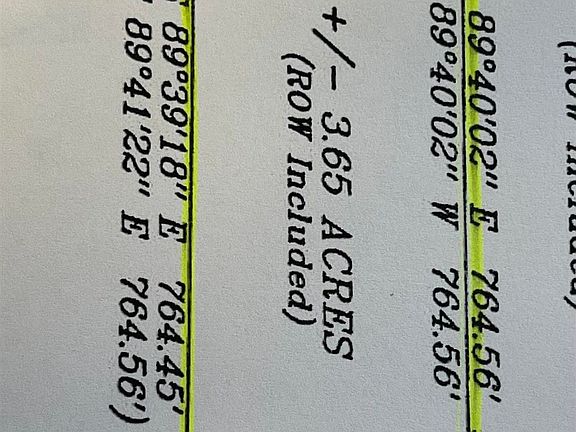 (ROW Included)
89°40'02" E 764.56'
89°40'02" W 764.56'
+/- 3.65 ACRES
(ROW Included)
89°39'18" E 764.45'
89°41'22" E 764.56')